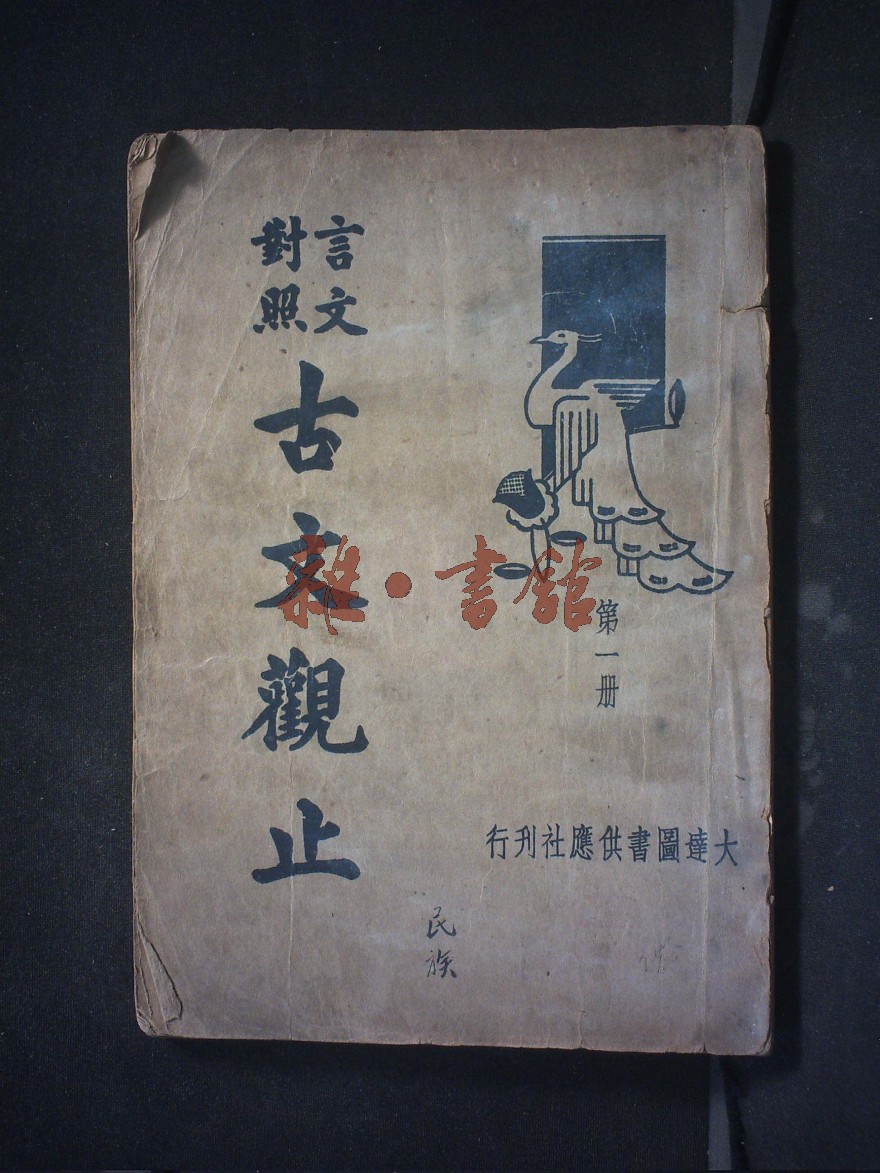 言文
對照
古文觀止
第一册
大達圖書供應社刊行
民族
雜·書館